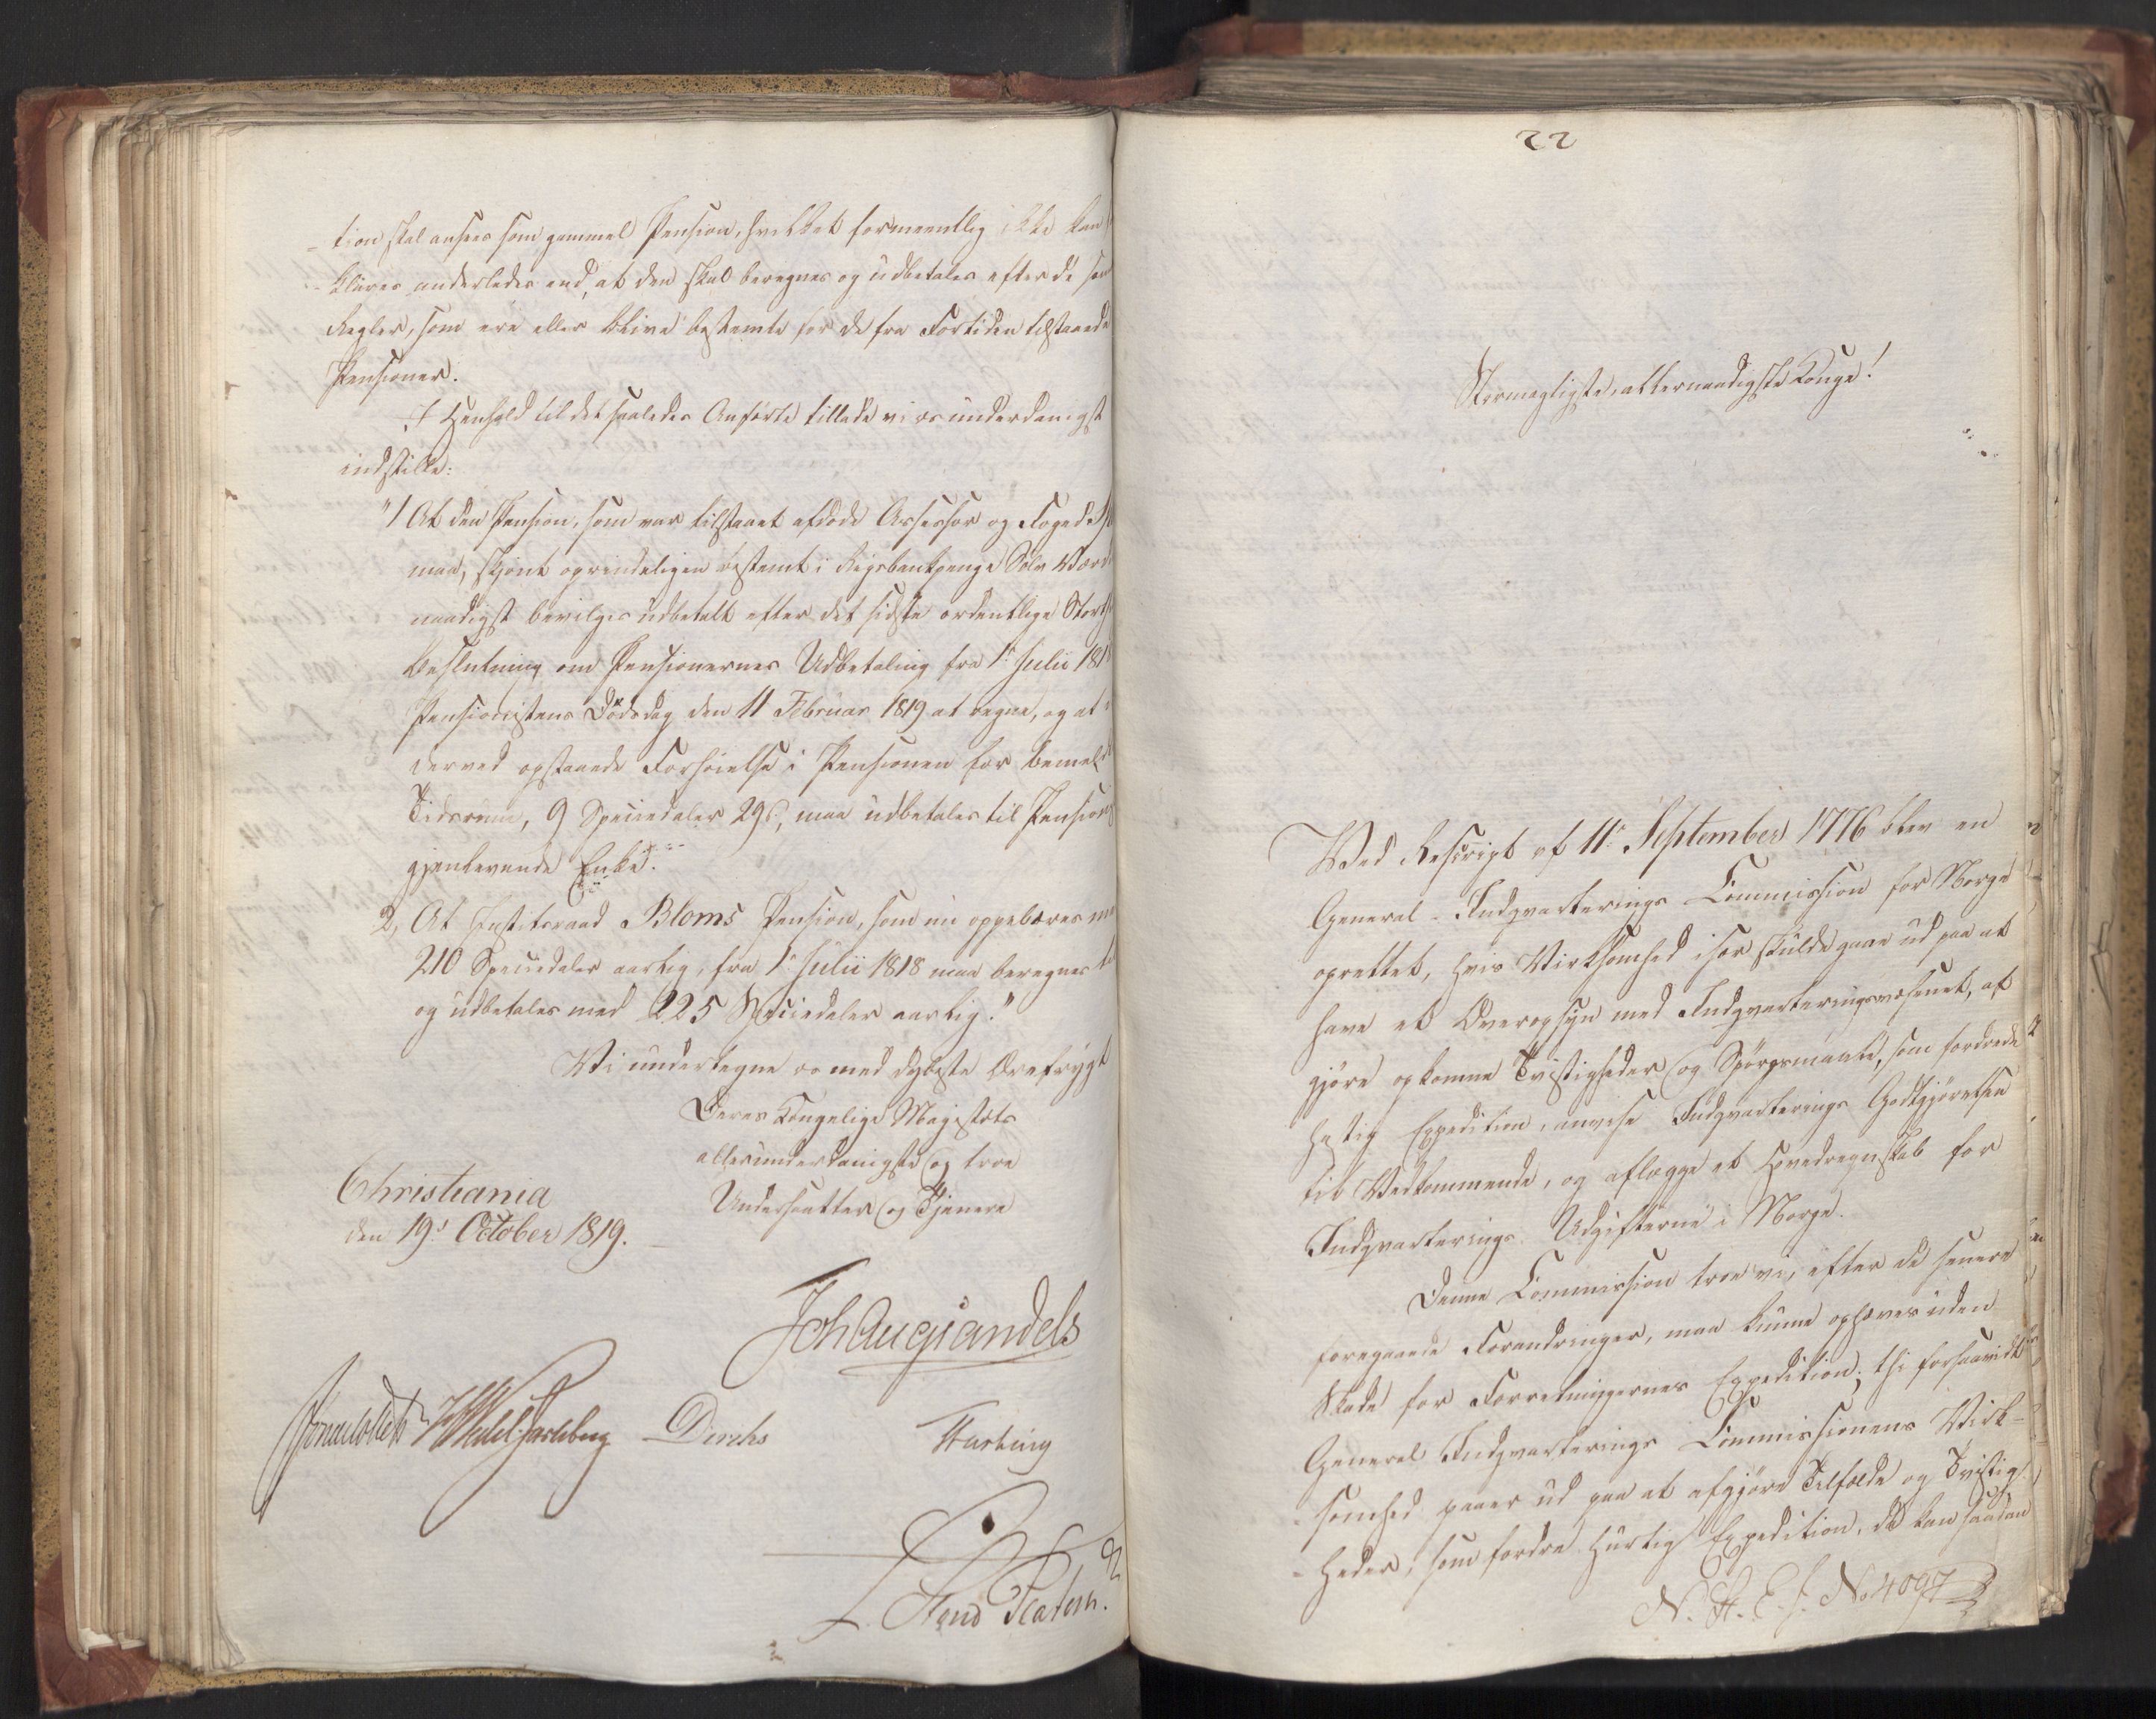 -tion skal ansees som gammel Pension, hvilket formeentlig ikke kan
klares anderledes end, at den skal beregnes og udbetales efter de
Regler, som ere eller blive bestemte for de fra Fortiden tilstaaede
Pensioner.
I Henhold til det saaledes Anførte tillade vi os underdanigst
indstille:
"1 At den Pension, som var tilstaaet afdøde Assessor og Foged
maa, skjønt oprindeligen bestemt i Rigsbankpenge Sølv Værdi
naadigst bevilges udbetalt efter det sidste ordentlige
Beslutning om Pensionernes Udbetaling fra 1ste Julii
Pensionistens Dødsdag den 11 Februar 1819 at regne, og at
derved opstaaede Forhøielse i Pensionen for
Tidsrum, 9 Speciedaler 29 s., maa udbetales til
gjenlevende Enke.
2, At Justitsraad Bloms Pension, som nu oppebæres
210 Speciedaler aarlig, fra 1ste Julii 1818 maa beregnes
og udbetales med 225 Speciedaler aarlig."
Vi undertegne os med dybeste Ærefrygt
Deres Kongelige Majestæts
allerunderdanigste og troe
Undersaatter og Tjenere
Christiania
den 19de October 1819.
Joh Aug Sandels
Sommerhielm HWedel Jarlsberg Diriks
Fasting
L. Stoud Platou.
22
Stormægtigste, allernaadigste Konge!
Ved Rescript af 11te September 1776 blev en
General-Indqvarterings Commission for Norge
oprettet, hvis Virksomhed især skulde gaae ud paa at
have et Overopsyn med Indqvarteringsvæsenet, af
gjøre opkomne Tvistigheder og Spørgsmaale, som fordrede
hastig Expedition, anvise Indqvarterings Godtgjørelsen
til Vedkommende, og aflægge et Hovedregnskab for
Indqvarterings Udgifterne i Norge.
Denne Commission troe vi, efter de senere
foregaaede Forandringer, maa kunne ophæves uden
Skade for Forretningernes Expedition; thi forsaavidt
General Indqvarterings Commissionens Virk-
-somhed gaaer ud paa at afgjøre Tilfælde og Tvistig
-heder, som fordre hurtig Expedition, da kan saadan
N. St. E. J. No 4097